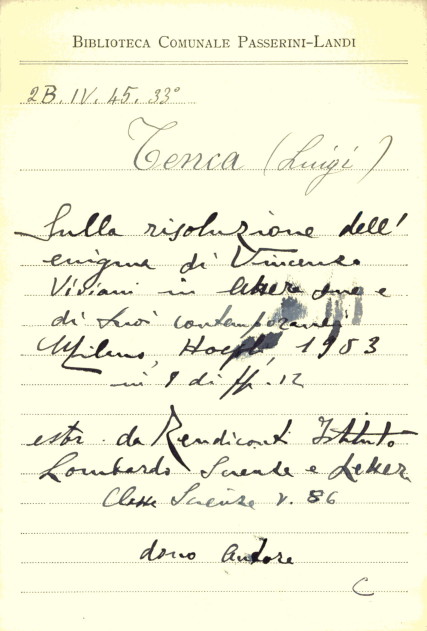 BIBLIOTECA COMUNALE PASSERINI-LANDI
2B. IV. 45. 33°
Tenca (Luigi)
Sulla risoluzione dell'
enigma di Vincenzo
Viviani in lettere sue e
di suoi contemporanei
Milano, Hoepli, 1953
in 8° di pp. 12
estr. da Rendiconti Istituto
Lombardo Scienze e Lettere
Classe Scienze v. 86
dono autore
C